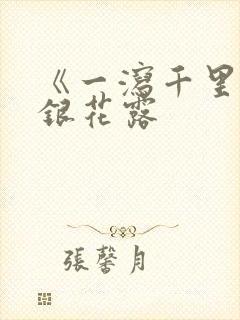 《一瀉千里
銀花露
張馨月